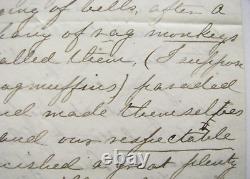 ing of bells, after a
pany of rag monkeys
alled them, (I suppose
agmuffins) paraded
nd made themselves
and our respectable
nished a great plenty